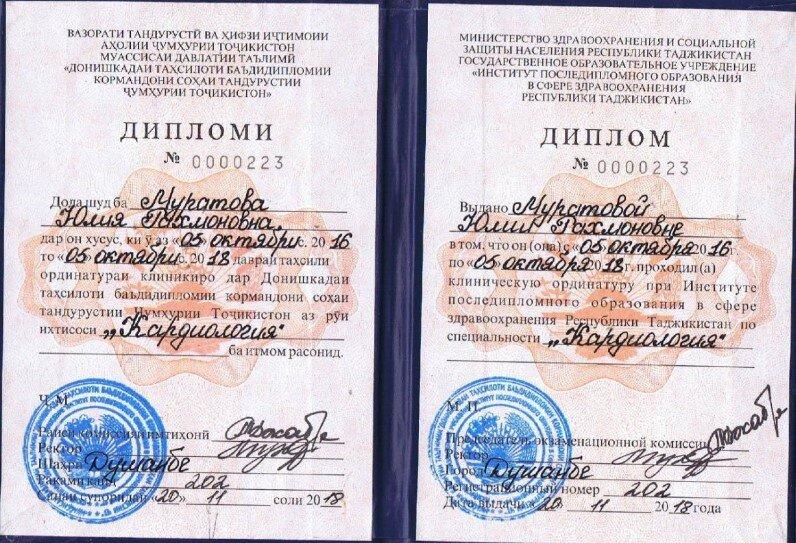 ВАЗОРАТИ ТАНДУРУСТӢ ВА ҲИФЗИ ИҶТИМОИИ
АҲОЛИИ ҶУМҲУРИИ ТОҶИКИСТОН
МУАССИСАИ ДАВЛАТИИ ТАЪЛИМӢ
«ДОНИШКАДАИ ТАҲСИЛОТИ БАЪДИДИПЛОМИИ
КОРМАНДОНИ СОҲАИ ТАНДУРУСТИИ
ҶУМҲУРИИ ТОҶИКИСТОН»
ДИПЛОМИ
№ 0000223
Дода шуд ба Муратова
Юлия Рахмоновна
дар он хусус, ки ӯ аз «05» октябри с. 2016
то «05» октябри с. 2018 давраи таҳсили
ординатураи клиникиро дар Донишкадаи
таҳсилоти баъдидипломии кормандони соҳаи
тандурустии Ҷумҳурии Тоҷикистон аз рӯи
ихтисоси „Кардиология"
ба итмом расонид.
Ҷ. М.
Раиси комиссияи имтиҳонӣ
Ректор
Шаҳри Душанбе
Рақами қайд 202
Санаи супоридан «20» 11 соли 2018
МИНИСТЕРСТВО ЗДРАВООХРАНЕНИЯ И СОЦИАЛЬНОЙ
ЗАЩИТЫ НАСЕЛЕНИЯ РЕСПУБЛИКИ ТАДЖИКИСТАН
ГОСУДАРСТВЕННОЕ ОБРАЗОВАТЕЛЬНОЕ УЧРЕЖДЕНИЕ
«ИНСТИТУТ ПОСЛЕДИПЛОМНОГО ОБРАЗОВАНИЯ
В СФЕРЕ ЗДРАВООХРАНЕНИЯ
РЕСПУБЛИКИ ТАДЖИКИСТАН»
ДИПЛОМ
№ 0000223
Выдано Муратовой
Юлии Рахмоновне
в том, что он (она) с «05» октября 2016 г.
по «05» октября 2018 г. проходил (а)
клиническую ординатуру при Институте
последипломного образования в сфере
здравоохранения Республики Таджикистан по
специальности „Кардиология"
М. П.
Председатель экзаменационной комиссии
Ректор
Город Душанбе
Регистрационный номер 202
Дата выдачи «20» 11 2018 года